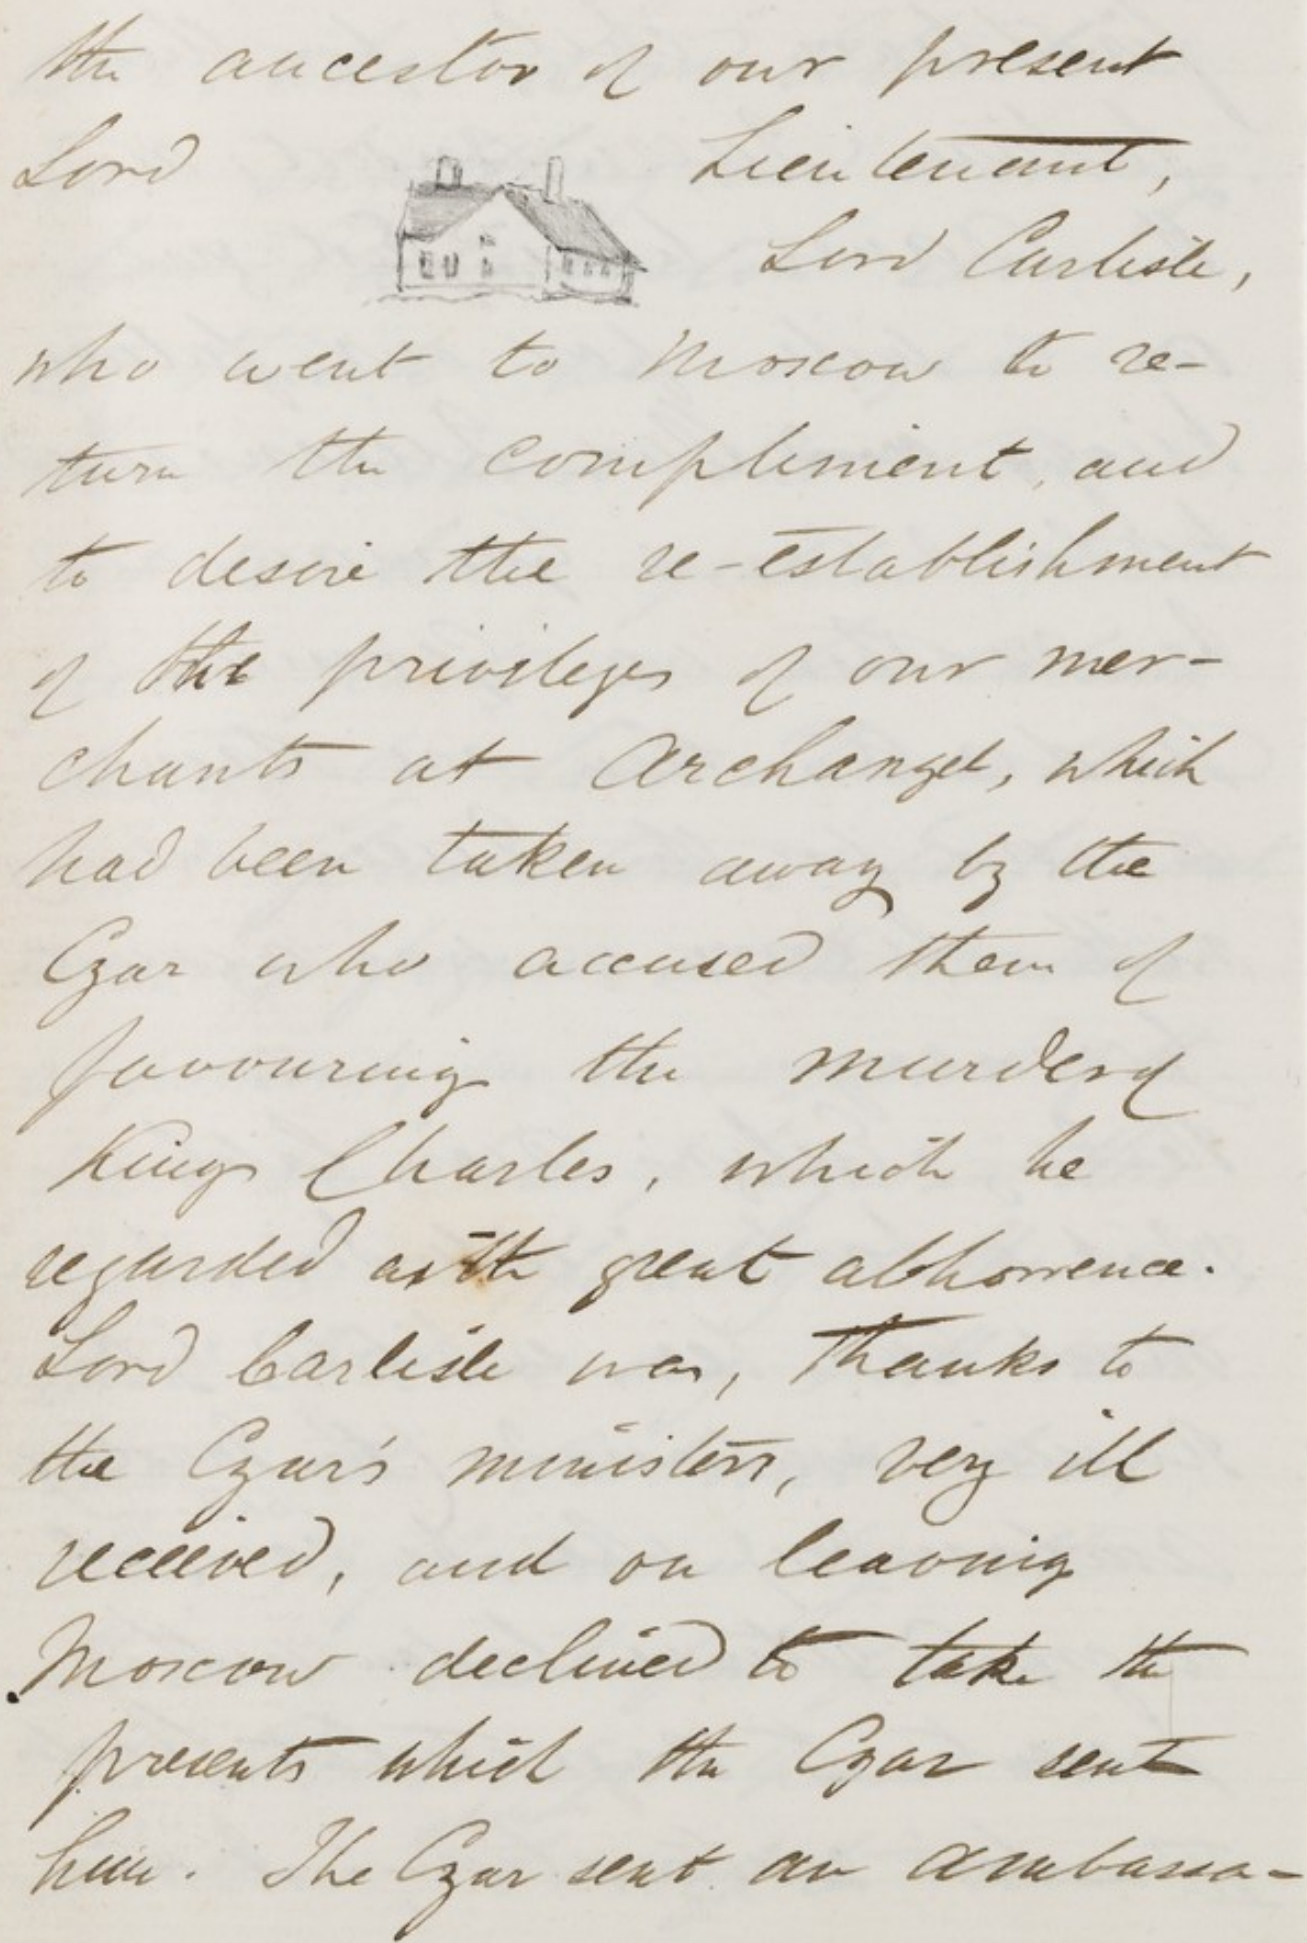 the ancestor of our present
Lord Lieutenant,
Lord Carlisle,
who went to Moscow to re-
turn the compliment, and
to desire the re-establishment
of the privileges of our mer-
chants at Archangel, which
had been taken away by the
Czar who accused them of
favouring the murder of
King Charles, which he
regarded with great abhorrence.
Lord Carlisle was, thanks to
the Czar's ministers, very ill
received, and on leaving
Moscow declined to take the
presents which the Czar sent
him. The Czar sent an ambassa-